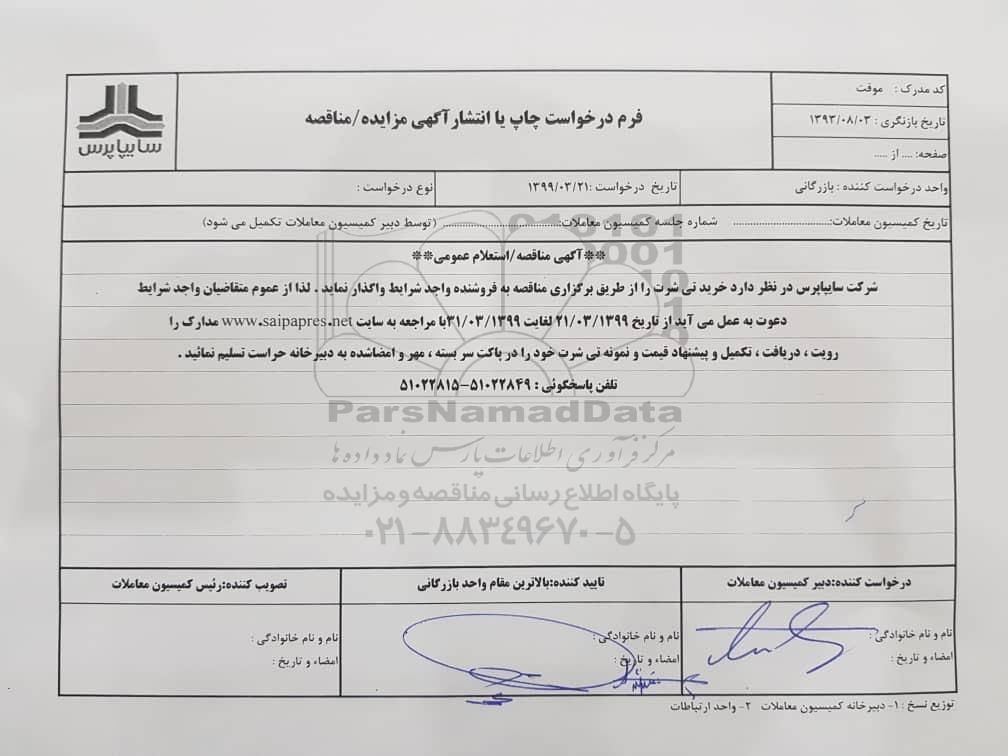 کد مدرک : موقت
تاریخ بازنگری : ۱۳۹۳/۰۸/۰۳
صفحه: .... از .....
فرم درخواست چاپ یا انتشارآگهی مزایده/مناقصه
سایپاپرس
واحد درخواست کننده : بازرگانی
تاریخ درخواست :۱۳۹۹/۰۳/۲۱
نوع درخواست :
تاریخ کمیسیون معاملات:................................ شماره جلسه کمیسیون معاملات:...................................... (توسط دبیر کمیسیون معاملات تکمیل می شود)
**آگهی مناقصه/استعلام عمومی**
شرکت سایپاپرس در نظر دارد خرید تی شرت را از طریق برگزاری مناقصه به فروشنده واجد شرایط واگذار نماید . لذا از عموم متقاضیان واجد شرایط
دعوت به عمل می آید از تاریخ ۲۱/۰۳/۱۳۹۹ لغایت ۳۱/۰۳/۱۳۹۹با مراجعه به سایت www.saipapres.net مدارک را
رویت ، دریافت ، تکمیل و پیشنهاد قیمت و نمونه تی شرت خود را در پاکت سر بسته ، مهر و امضاشده به دبیرخانه حراست تسلیم نمائید .
تلفن پاسخگوئی : ۵۱۰۲۲۸۴۹-۵۱۰۲۲۸۱۵
ParsNamadData
مرکز فرآوری اطلاعات پارس نماد داده ها
پایگاه اطلاع رسانی مناقصه و مزایده
۰۲۱-۸۸۳۴۹۶۷۰-۵
درخواست کننده:دبیر کمیسیون معاملات
تایید کننده:بالاترین مقام واحد بازرگانی
تصویب کننده:رئیس کمیسیون معاملات
نام و نام خانوادگی :
امضاء و تاریخ :
نام و نام خانوادگی :
امضاء و تاریخ :
نام و نام خانوادگی :
امضاء و تاریخ :
توزیع نسخ : ۱- دبیرخانه کمیسیون معاملات ۲- واحد ارتباطات